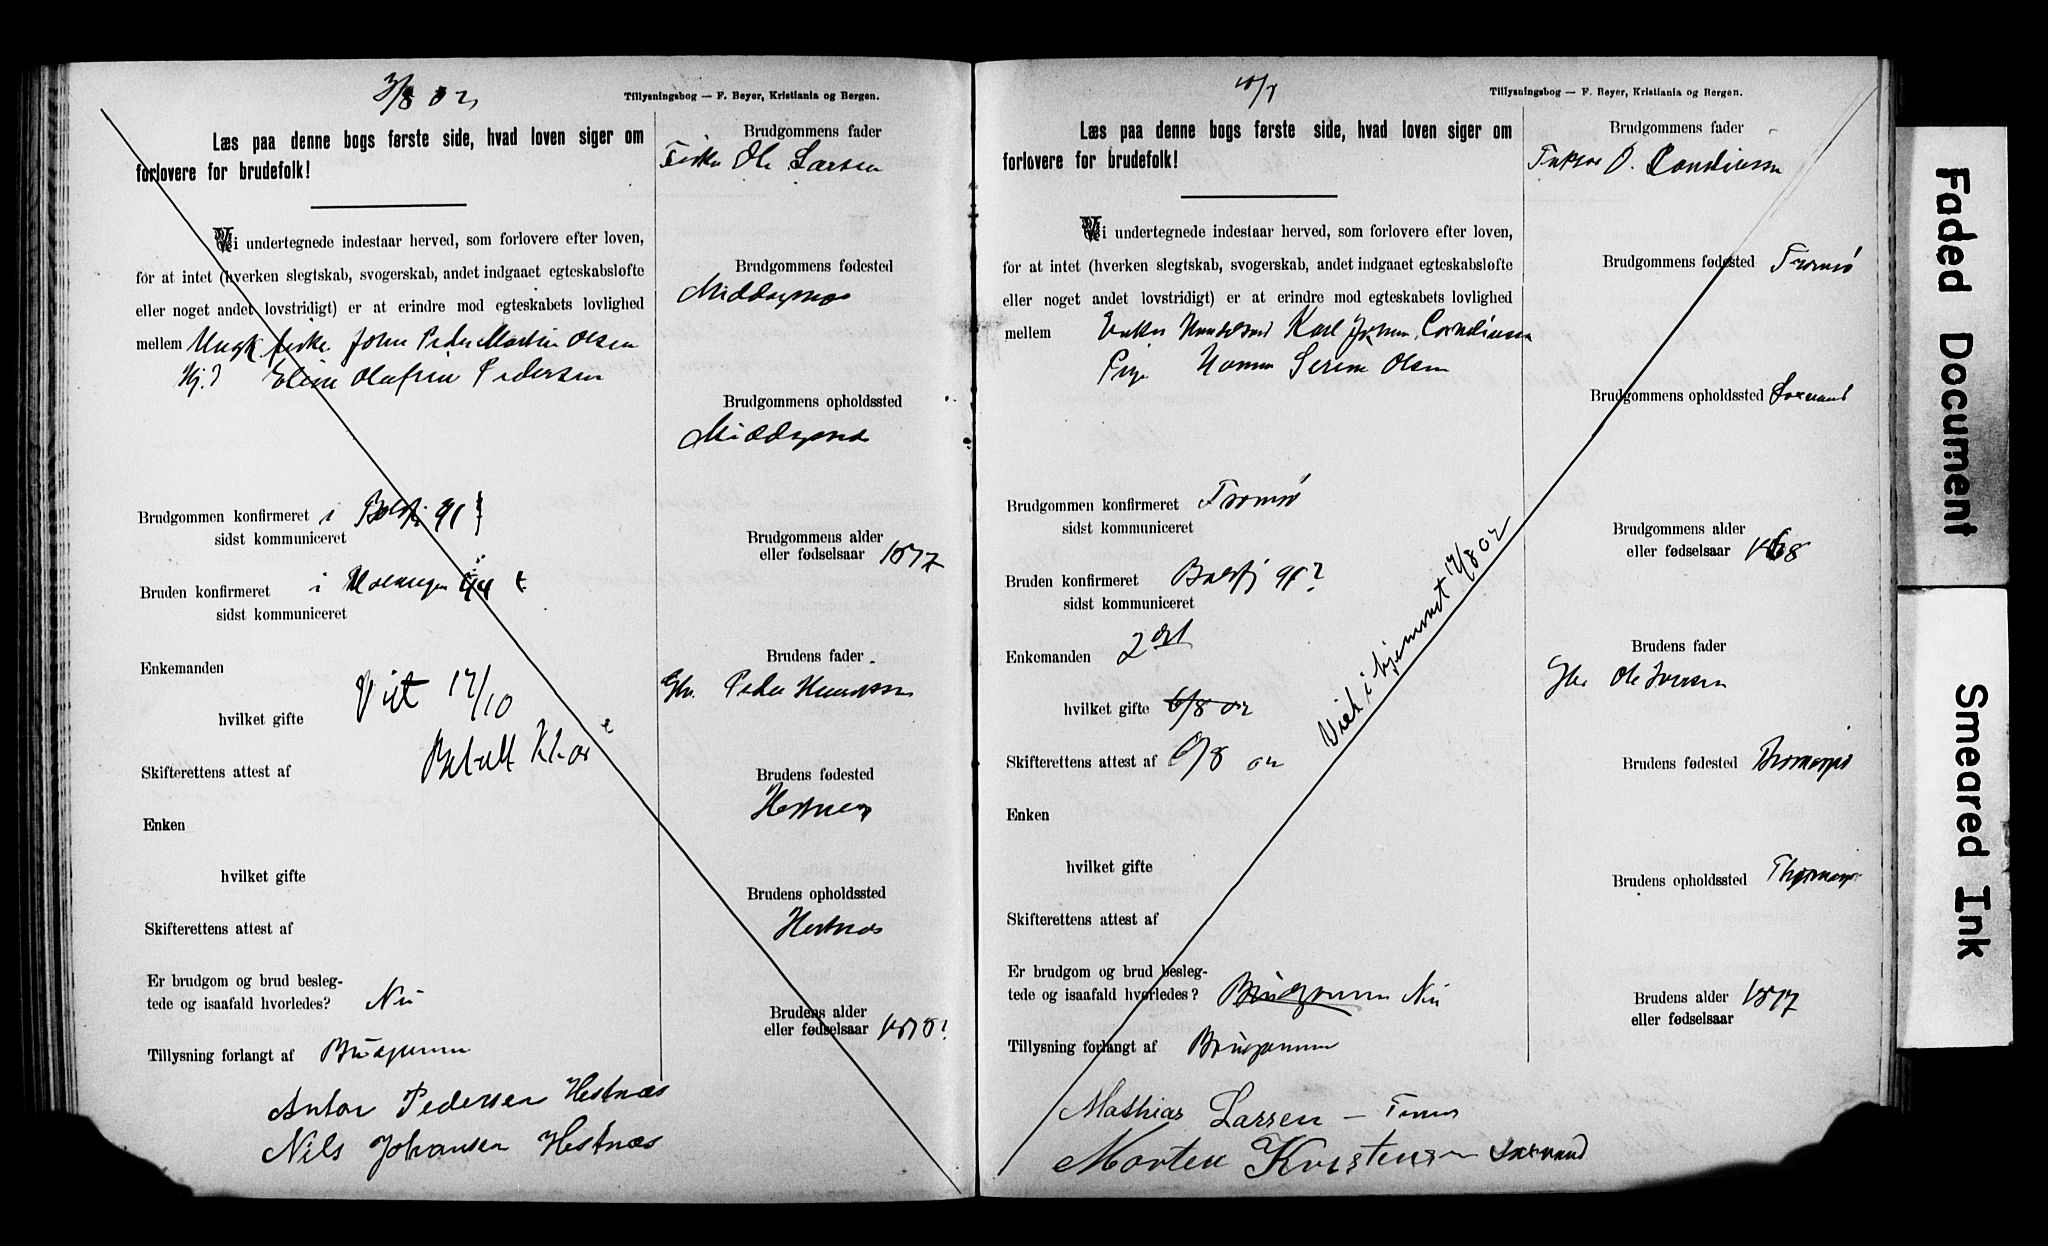 3/8 02
Tillysningsbog — F. Beyer, Kristiania og Bergen.
Læs paa denne bogs første side, hvad loven siger om
forlovere for brudefolk!
Vi undertegnede indestaar herved, som forlovere efter loven,
for at intet (hverken slegtskab, svogerskab, andet indgaaet egteskabsløfte
eller noget andet lovstridigt) er at erindre mod egteskabets lovlighed
mellem Ungk fisker John Peder Martin Olsen
Pj. Eline Olufine Pedersen
Brudgommen konfirmeret i Balsfj 91
sidst kommuniceret
Bruden konfirmeret i Malangen 94
sidst kommuniceret
Enkemanden
Viet 17/10
hvilket gifte
Betalt
Skifterettens attest af
Enken
hvilket gifte
Skifterettens attest af
Er brudgom og brud besleg-
tede og isaafald hvorledes? Nei
Tillysning forlangt af Brudgommen
Anton Pedersen Hestnæs
Nils Johansen Hestnæs
Brudgommens fader
Fisker Ole Larsen
Brudgommens fødested
Middagsnes
Brudgommens opholdssted
Middagsnes
Brudgommens alder
eller fødselsaar 1877
Brudens fader
Gbr. Peder
Brudens fødested
Hestnes
Brudens opholdssted
Hestnæs
Brudens alder
eller fødselsaar 1878?
Tillysningsbog — F. Beyer, Kristiania og Bergen.
Læs paa denne bogs første side, hvad loven siger om
forlovere for brudefolk!
Vi undertegnede indestaar herved, som forlovere efter loven,
for at intet (hverken slegtskab, svogerskab, andet indgaaet egteskabsløfte
eller noget andet lovstridigt) er at erindre mod egteskabets lovlighed
mellem Enkem Karl Johan Cornelius
Pige Hanna Serine Olsen
Brudgommen konfirmeret Tromsø
sidst kommuniceret
Bruden konfirmeret Balsfj 91?
sidst kommuniceret
Enkemanden 2det
hvilket gifte 6/8 02
Skifterettens attest af 6/8 02
Viet i hjemmet 17/8 02
Enken
hvilket gifte
Skifterettens attest af
Er brudgom og brud besleg-
tede og isaafald hvorledes? Brudgommen Nei
Tillysning forlangt af Brudgommen
Mathias Larsen —
Morten Kristensen
Brudgommens fader
O. Cornelius
Brudgommens fødested Tromsø
Brudgommens opholdssted
Brudgommens alder
eller fødselsaar 1868
Brudens fader
Gbr Ole Iversen
Brudens fødested
Brudens opholdssted
Brudens alder 1877
eller fødselsaar
Faded Document
Smeared Ink